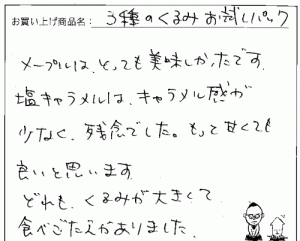 お買い上げ商品名： 3種のくるみお試しパック
メープルは、とっても美味しかったです。
塩キャラメルは、キャラメル感が
少なく、残念でした。もっと甘くても
良いと思います。
どれも、くるみが大きくて
食べごたえがありました。